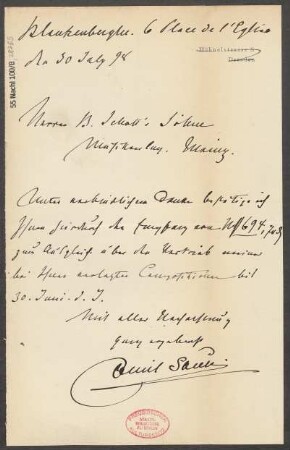 Blankenberghe. 6 Place de l'Eglise
den 30 July 98
Herren B. Schott's Söhne
Musikverlag. Mainz.
Unter verbindlichem Danke bestätige ich
Ihnen hierdurch den Empfang von
zum Ausgleich über den Vertrieb meiner
bei Ihnen verlegten Compositionen bis
30. Juni d. J.
Mit aller Hochachtung
ganz ergebenst
Emil Sauer
55 Nachl 100/B